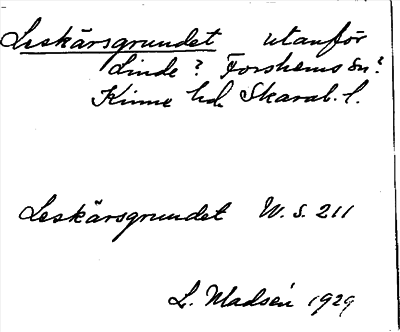 Leskärsgrundet utanför
Linde? Forshems sn?
Kinne hd. Skarab. l.
Leskärsgrundet W. S. 211
L. Madsén 1929